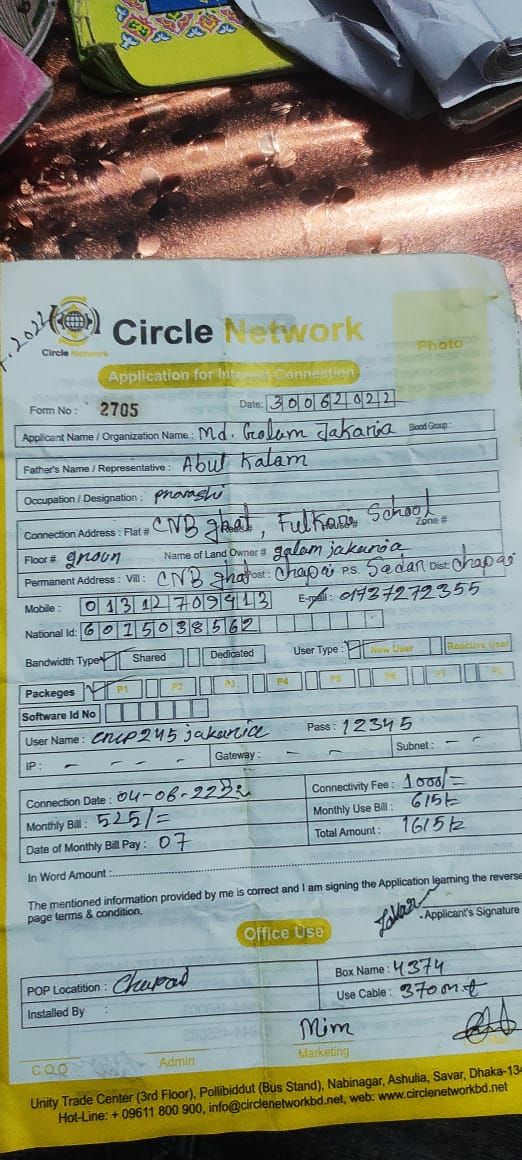 Circle Network
Circle Network
Photo
Application for Internet Connection
Form No : 2705
Date: 30062022
Applicant Name / Organization Name : Md. Golam Jakaria Blood Group :
Father's Name / Representative : Abul Kalam
Occupation / Designation : provashi
Connection Address : Flat # CNB ghat, Fulkari School House # Zone #
Floor # groun Name of Land Owner # golam jakaria
Permanent Address : Vill : CNB ghat Post : Chapai P.S. Sadar Dist: chapai
Mobile : 01312709413 E-mail : 01737272355
National Id: 6015038562
Bandwidth Type Shared Dedicated User Type : New User Reactive User
Packeges P1 P2 P3 P4 P5 P6 P7 P8
Software Id No
User Name : cncp245jakaria Pass : 12345
IP : - - - - Gateway : - - Subnet : - -
Connection Date : Connectivity Fee : 1000/=
Monthly Bill : 525/= Monthly Use Bill : 615/=
Date of Monthly Bill Pay : 07 Total Amount : 1615/=
In Word Amount :
The mentioned information provided by me is correct and I am signing the Application learning the reverse
page terms & condition.
Applicant's Signature
Office Use
POP Locatition : Box Name : 4374
Installed By : Use Cable : 370 m.t
Mim
C.O.O Admin Marketing
Unity Trade Center (3rd Floor), Pollibiddut (Bus Stand), Nabinagar, Ashulia, Savar, Dhaka-134
Hot-Line: + 09611 800 900, info@circlenetworkbd.net, web: www.circlenetworkbd.net